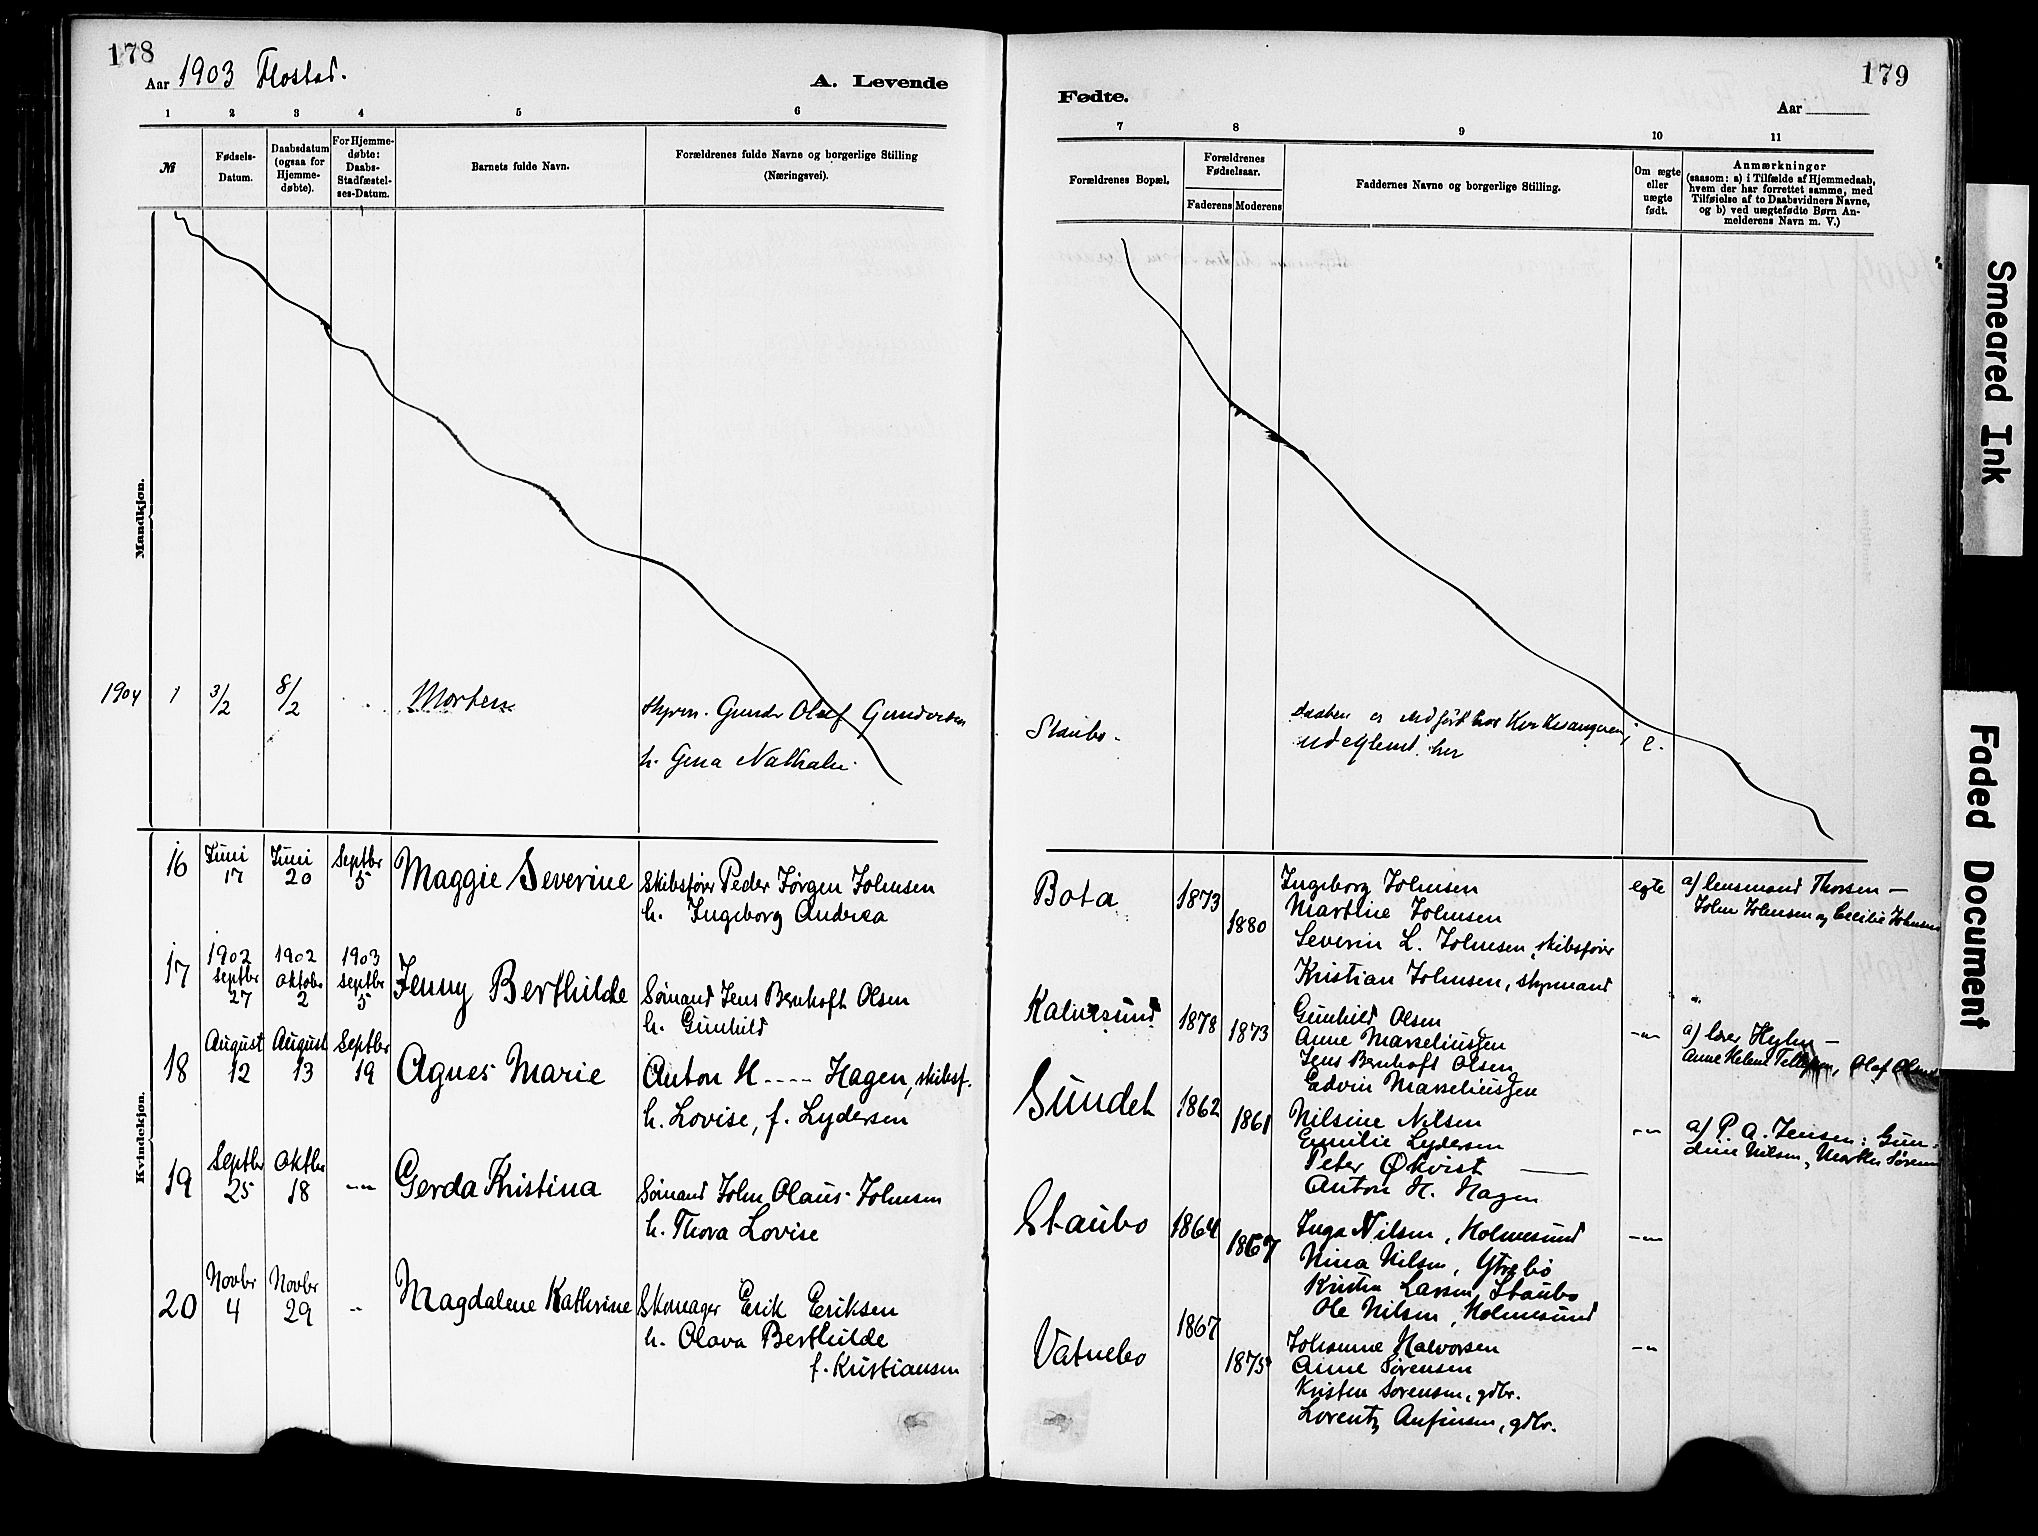 178
Aar 1903 Flostad.
A. Levende
1 2 3 4 5 6
№
Fødsels-
Datum.
Daabsdatum
(ogsaa for
Hjemme-
døbte).
For Hjemme-
døbte:
Daabs-
Stadfæstel-
ses-Datum.
Barnets fulde Navn.
Forældrenes fulde Navne og borgerlige Stilling
(Næringsvei).
Mandkjøn.
1904 1 3/2 8/2 Morten
styrm. Gundr Olaf Gundersen
h. Gina Nathalie.
Kvindekjøn.
16 Juni 17 Juni 20 Septbr 5 Maggie Severine
Skibsfører Peder Jørgen Johnsen
h. Ingeborg Andrea
17 1902 Septbr 27 1902 Oktobr 2 1903 Septbr 5 Jenny Berthilde
Sømand Jens Bernhoft Olsen
h. Gunhild
18 August 12 August 13 Septbr 19 Agnes Marie
Anton H---- Hagen, skibsf.
h. Lovise, f. Lydersen
19 Septbr 25 Oktbr 18 -"- Gerda Kristina
Sømand John Olaus Johnsen
h. Thora Lovise
20 Novbr 4 Novbr 29 - Magdalene Kathrine
Skomager Erik Eriksen
h. Olava Berthilde
f. Kristiansen
179
Fødte.
Aar
7 8 9 10 11
Forældrenes Bopæl.
Forældrenes
Fødselsaar.
Faderens Moderens
Faddernes Navne og borgerlige Stilling.
Om ægte
eller
uægte
født.
Anmærkninger
(saasom: a) i Tilfælde af Hjemmedaab,
hvem der har forrettet samme, med
Tilføielse af to Daabsvidners Navne,
og b) ved uægtefødte Børn An-
melderens Navn m. V.)
Staubo.
Daaben er indført hos Kirkesangeren,
udeglemt her
e.
Bota 1873 1880
Ingeborg Johnsen
Martine Johnsen
Severin L. Johnsen, skibsfører
Kristian Johnsen, styrmand
egte
a) lensmand Thorsen —
John Johnsen og Cecilie Johnsen
Kalvesund 1878 1873
Gunhild Olsen
Anne Marseliussen
Jens Bernhoft Olsen
Edvin Marseliussen
-"-
a) lærer Hylen —
Anne Helene Tellefsen, Olaf Olsen
Sundet 1862 1861
Nilsine Nilsen
Emilie Lydersen
Peter Økvist ——
Anton H. Hagen
-"-
a) P. A. Jensen: Gun-
dine Nilsen, Marthe Sørensen
Staubo 1864 1867
Inga Nilsen, Holmesund
Nina Nilsen, Ytrebø
Kristen Larsen, Staubo
Ole Nilsen, Holmesund
-"-
Vatnebo 1867 1875
Johanne Halvorsen
Anne Sørensen
Kristen Sørensen, gdbr.
Lorentz Anfinsen, gdbr.
-"-
Smeared Ink
Faded Document